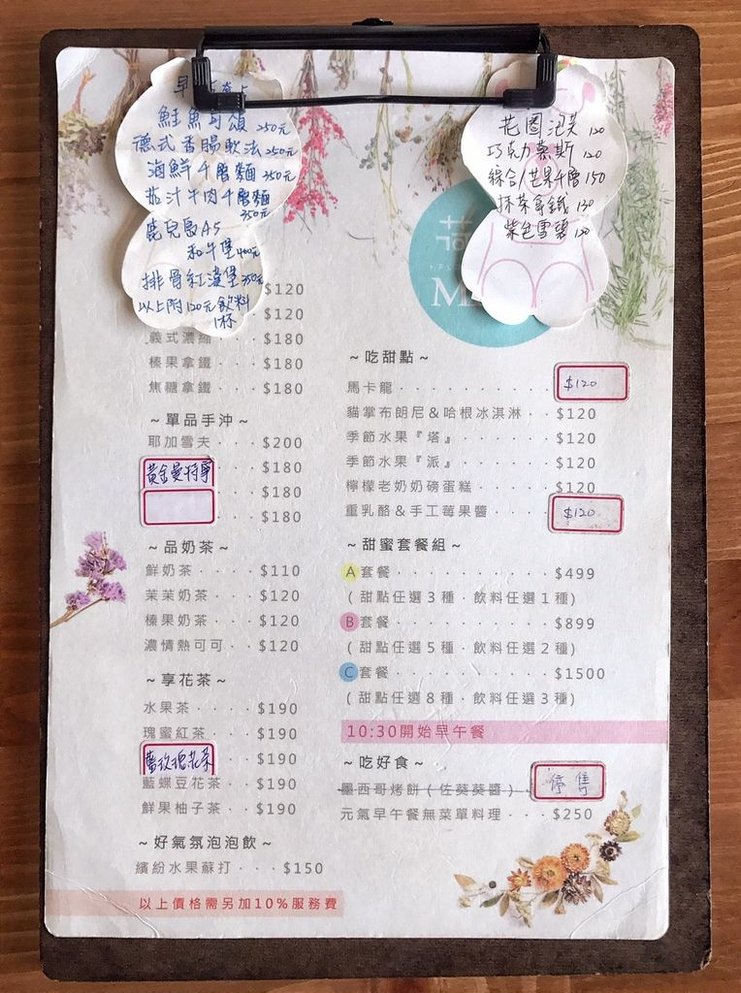 鮭魚可頌 250元
德式香腸軟法 250元
海鮮千層麵 350元
茄汁牛肉千層麵
350元
鹿兒島A5
和牛堡 400元
排骨紅漢堡 350元
以上附120元飲料
1杯
花園泡芙 120
巧克力慕斯 120
綜合/芒果千層 150
抹茶拿鐵 130
紫色雪雲 120
$120
$120
義式濃縮 $180
榛果拿鐵 · · · $180
焦糖拿鐵 · · · $180
~單品手沖~
耶加雪夫 · · · $200
黃金曼特寧 $180
· · · $180
· · · $180
~品奶茶~
鮮奶茶 · · · · $110
茉茉奶茶 · · · $120
榛果奶茶 · · · $120
濃情熱可可 · · $120
~享花茶~
水果茶 · · · · $190
瑰蜜紅茶 · · · $190
玫瑰花茶 · · $190
藍蝶豆花茶 · · $190
鮮果柚子茶 · · $190
~好氣氛泡泡飲~
繽紛水果蘇打 · · · $150
以上價格需另加10%服務費
~吃甜點~
馬卡龍 · · · · · · · · · · $120
貓掌布朗尼&哈根冰淇淋 · · $120
季節水果『塔』 · · · · · · $120
季節水果『派』 · · · · · · $120
檸檬老奶奶磅蛋糕 · · · · · $120
重乳酪&手工莓果醬 · · · · $120
~甜蜜套餐組~
A套餐 · · · · · · · · · · $499
(甜點任選3種．飲料任選1種)
B套餐 · · · · · · · · · · $899
(甜點任選5種．飲料任選2種)
C套餐 · · · · · · · · · · $1500
(甜點任選8種．飲料任選3種)
10:30開始早午餐
~吃好食~
墨西哥烤餅(佐葵葵醬) · · 停售
元氣早午餐無菜單料理 · · · $250